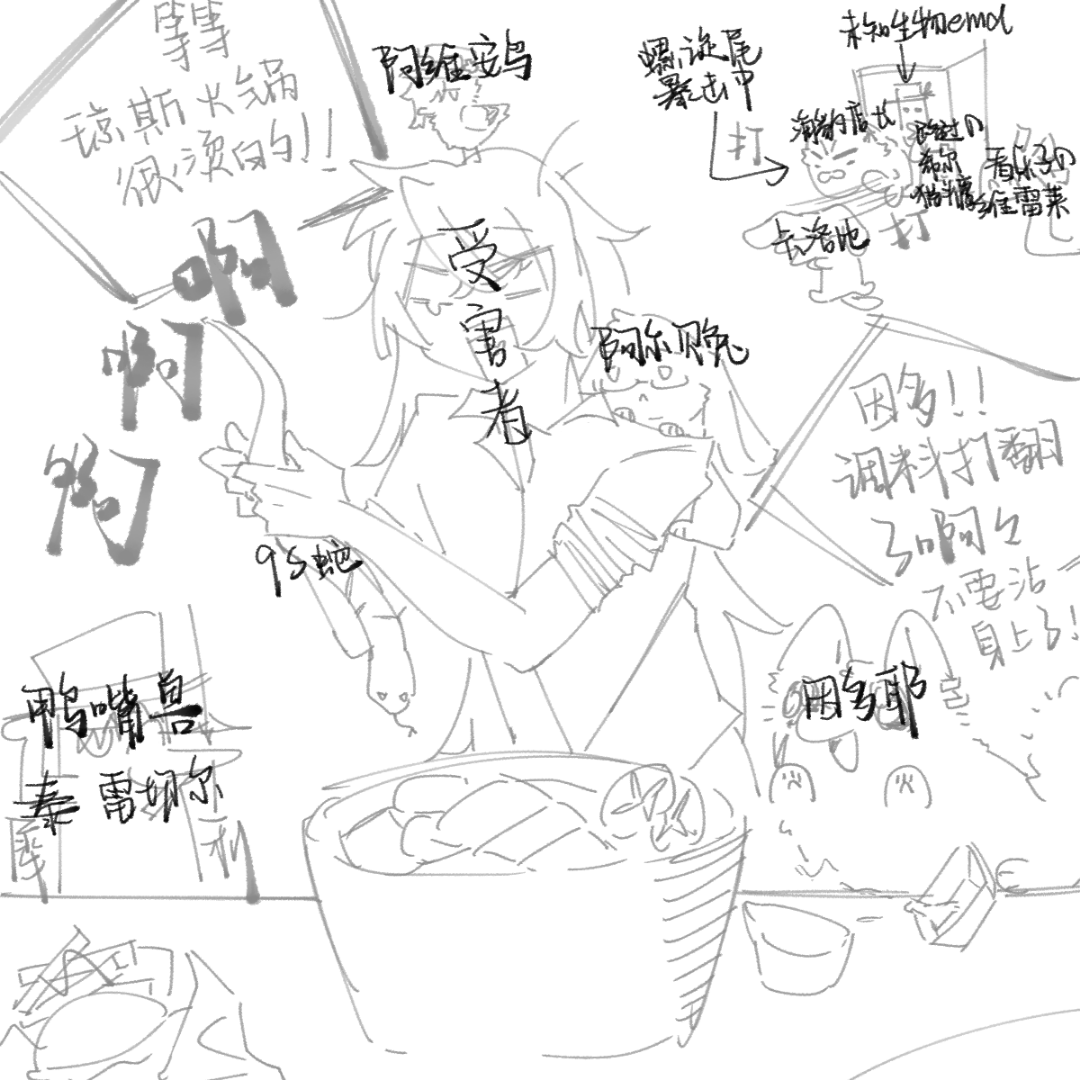 等等
琼斯火锅
很烫的!!
阿维安鸟
螺旋尾
暴击中
打
未知生物emd
海豹店长
路过的
希尔
看乐子的
维雷莱
打
卡洛地
受害者
阿尔贝兔
啊
啊
啊
9S蛇
因多!!
调料打翻
了啊之
不要沾
身上了!
鸭嘴兽
泰雷切尔
因多耶
火
火
库
机